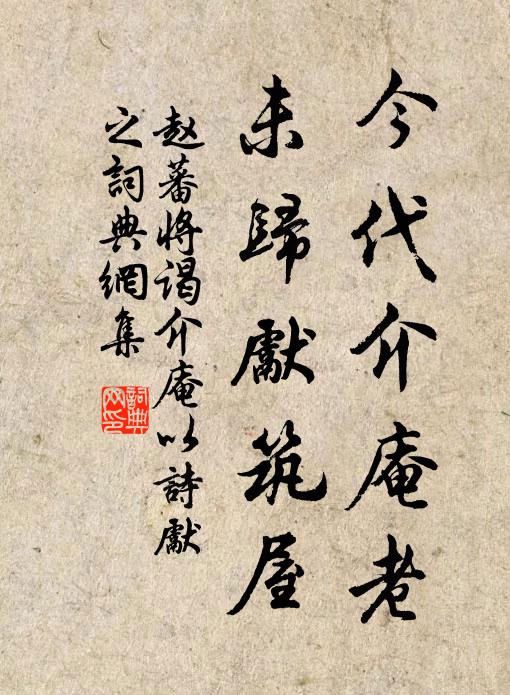 今代介庵老
未歸獻筑屋
赵蕃將谒介庵以詩獻
之詞典網集
詞典网印